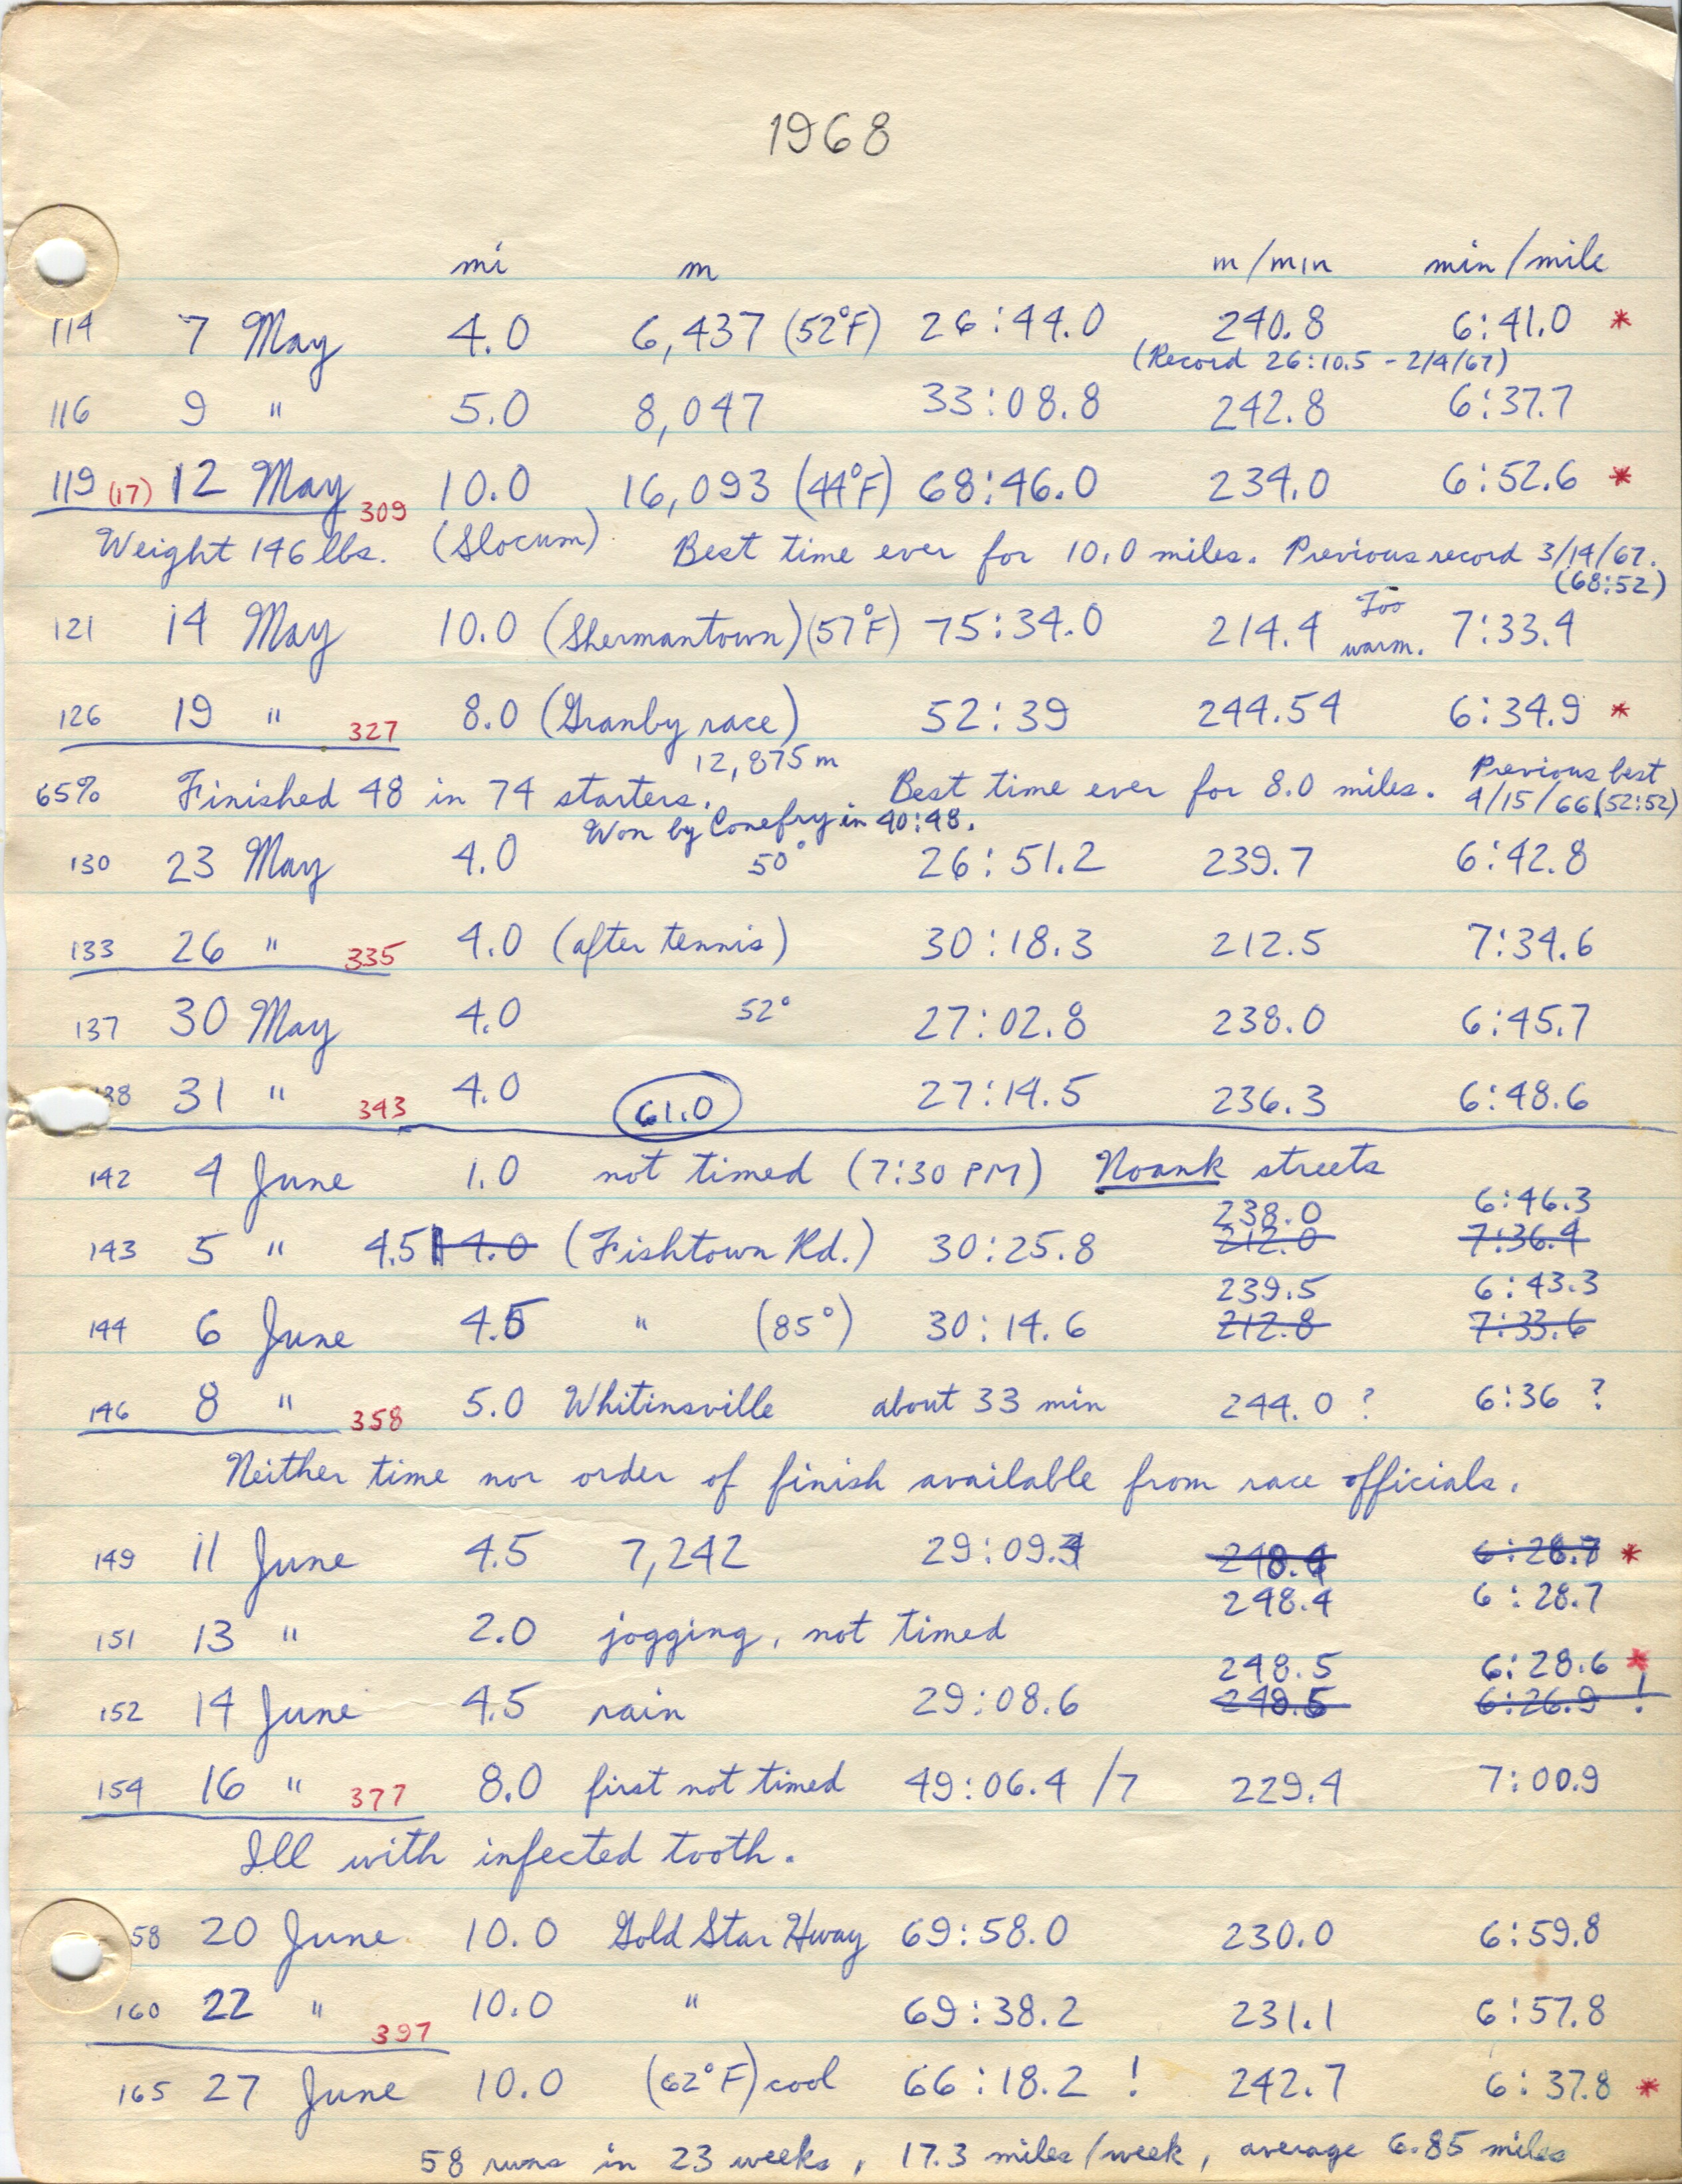 1968
mi m m/min min/mile
114 7 May 4.0 6,437 (52°F) 26:44.0 240.8 6:41.0 *
(Record 26:10.5 - 2/4/67)
116 9 " 5.0 8,047 33:08.8 242.8 6:37.7
119 (17) 12 May 309 10.0 16,093 (44°F) 68:46.0 234.0 6:52.6 *
Weight 146 lbs. (Slocum) Best time ever for 10.0 miles. Previous record 3/14/67.
(68:52)
121 14 May 10.0 (Shermantown) (57°F) 75:34.0 214.4 Too warm. 7:33.4
126 19 " 327 8.0 (Granby race) 52:39 244.54 6:34.9 *
12,875 m
65% Finished 48 in 74 starters. Best time ever for 8.0 miles. Previous best 4/15/66 (52:52)
Won by Conefry in 40:48.
130 23 May 4.0 50° 26:51.2 239.7 6:42.8
133 26 " 335 4.0 (after tennis) 30:18.3 212.5 7:34.6
137 30 May 4.0 52° 27:02.8 238.0 6:45.7
38 31 " 343 4.0 61.0 27:14.5 236.3 6:48.6
142 4 June 1.0 not timed (7:30 PM) Noank streets
238.0 6:46.3
143 5 " 4.5 4.0 (Fishtown Rd.) 30:25.8 212.0 7:36.4
239.5 6:43.3
144 6 June 4.5 " (85°) 30:14.6 212.8 7:33.6
146 8 " 358 5.0 Whitinsville about 33 min 244.0 ? 6:36 ?
Neither time nor order of finish available from race officials.
149 11 June 4.5 7,242 29:09.4 248.4 6:28.7 *
248.4 6:28.7
151 13 " 2.0 jogging, not timed
248.5 6:28.6 *
152 14 June 4.5 rain 29:08.6 249.5 6:26.9 !
154 16 " 377 8.0 first not timed 49:06.4 /7 229.4 7:00.9
Ill with infected tooth.
58 20 June 10.0 Gold Star Hway 69:58.0 230.0 6:59.8
160 22 " 397 10.0 " 69:38.2 231.1 6:57.8
165 27 June 10.0 (62°F) cool 66:18.2 ! 242.7 6:37.8 *
58 runs in 23 weeks, 17.3 miles/week, average 6.85 miles